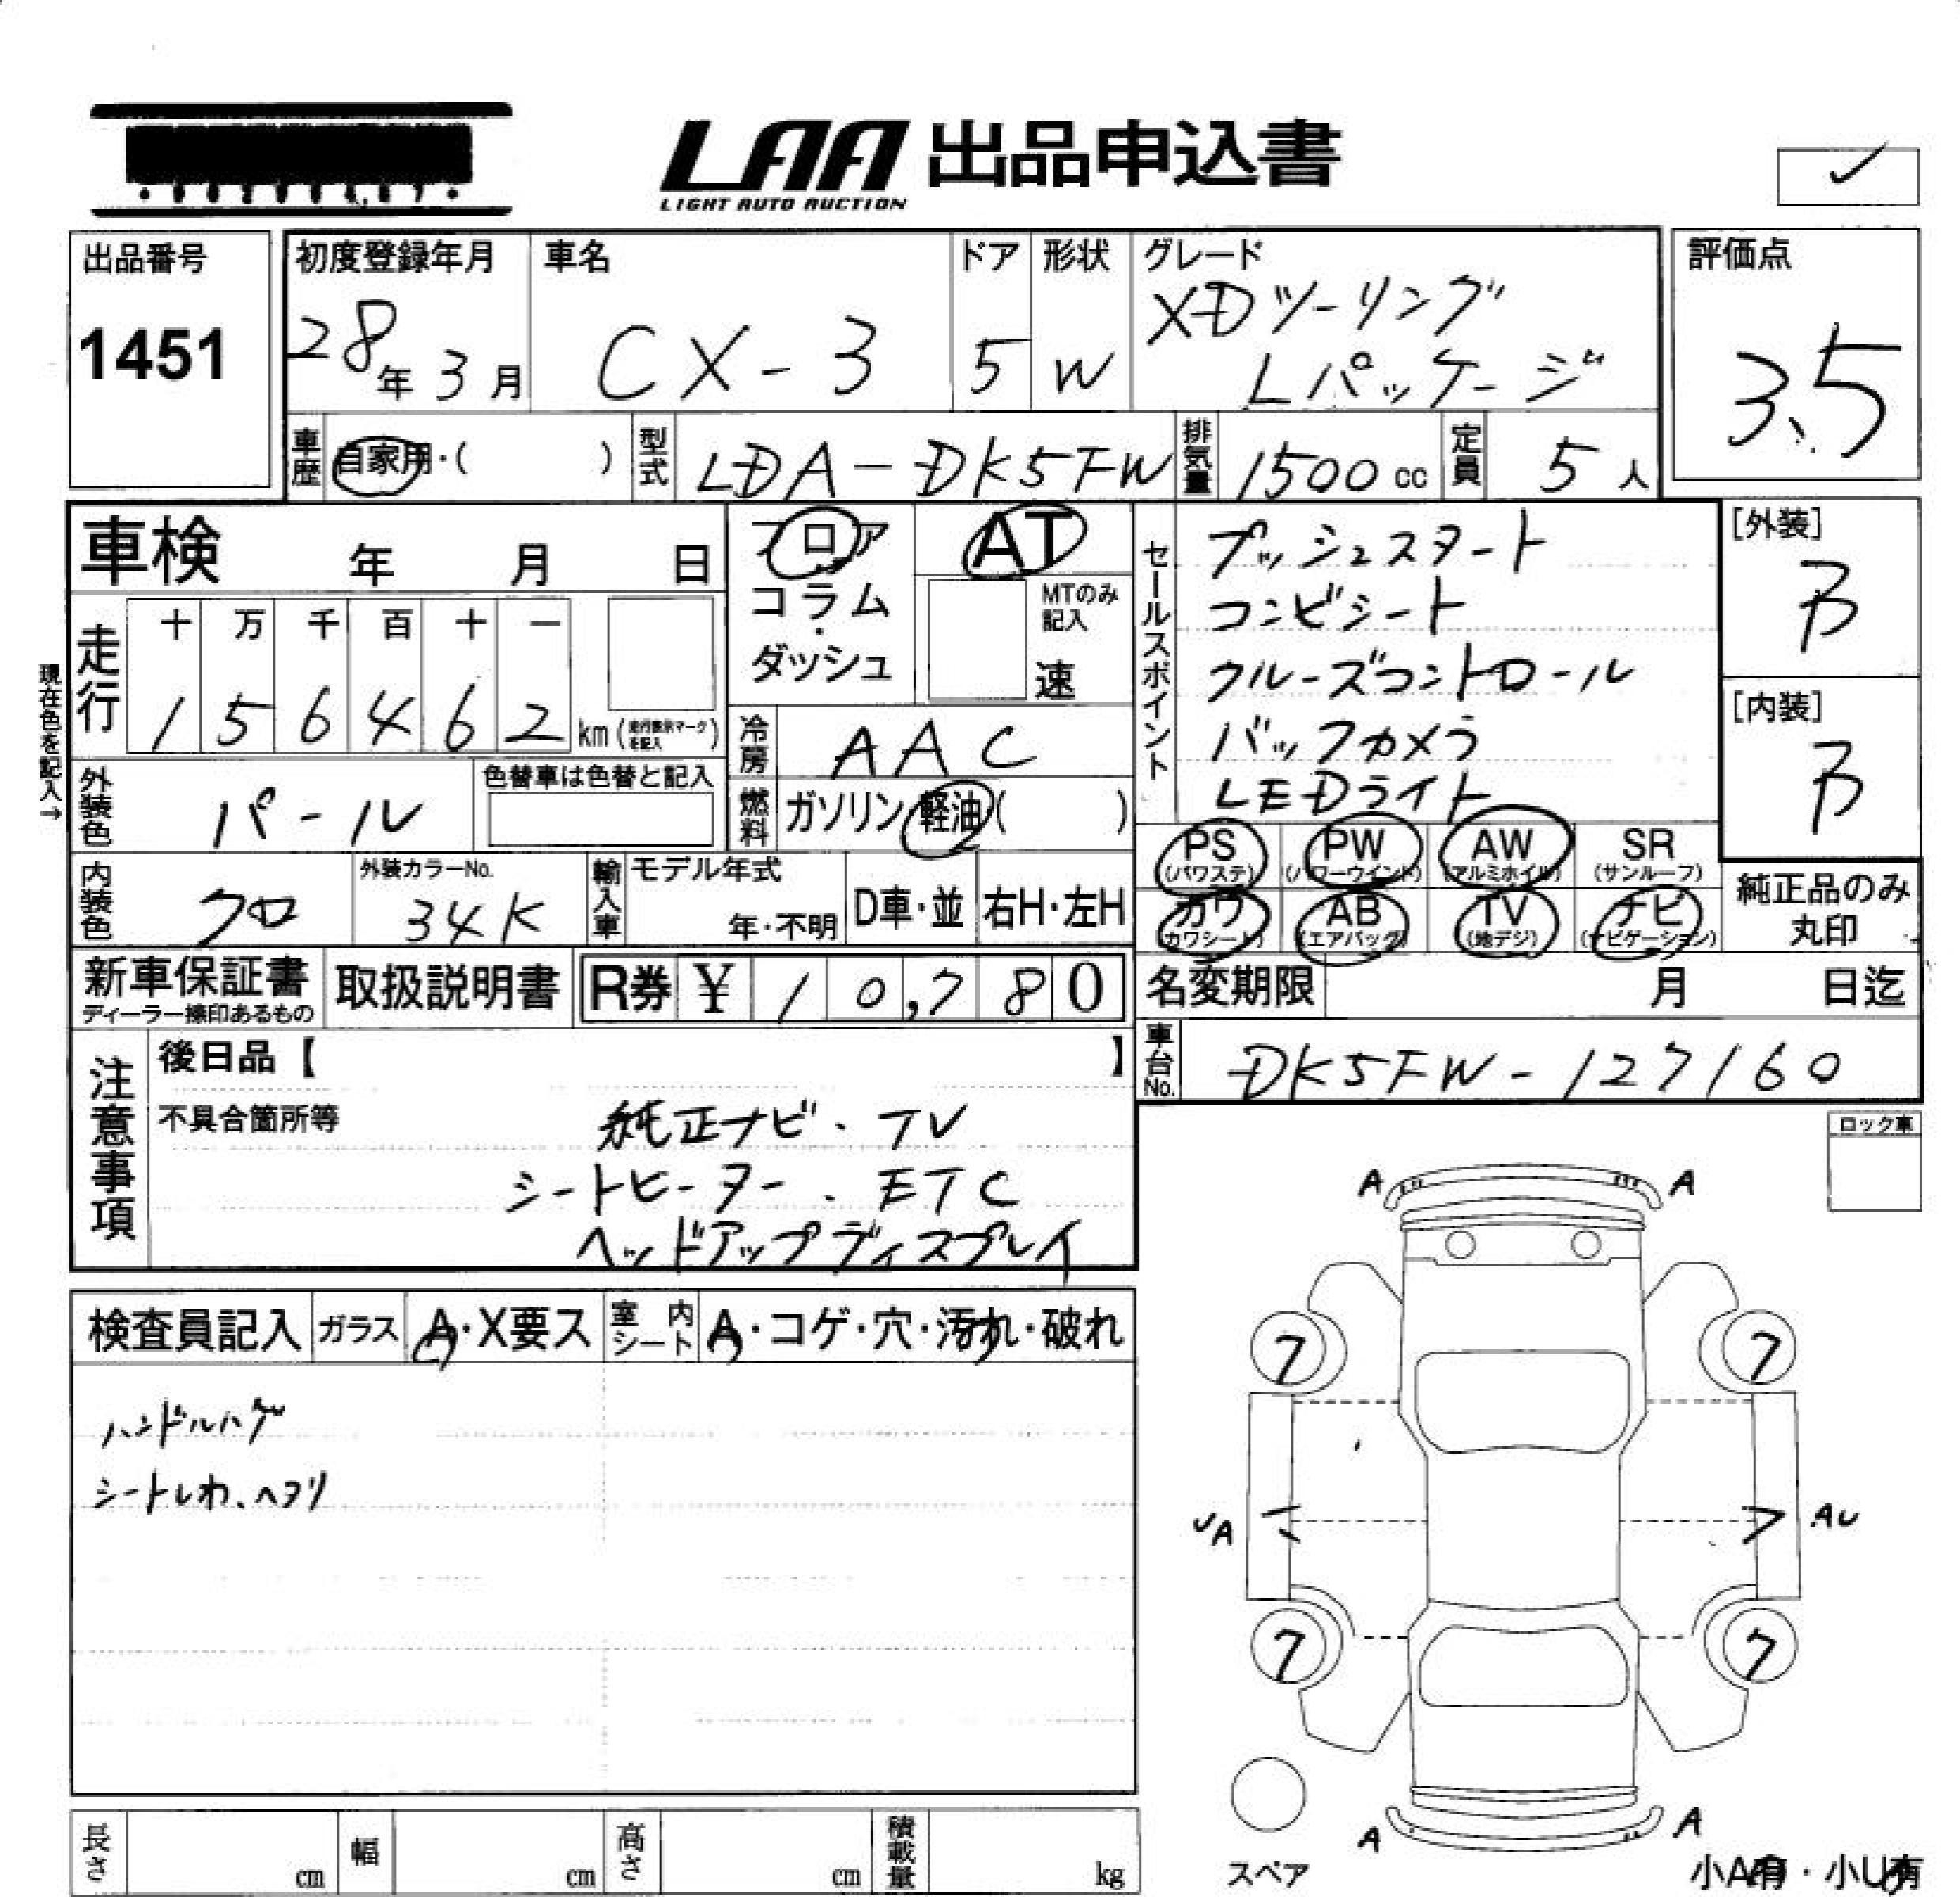 LAA 出品申込書
LIGHT AUTO AUCTION
出品番号
1451
初度登録年月
28年3月
車名
CX-3
ドア
5
形状
W
グレード
XDツーリング
Lパッケージ
評価点
3.5
車歴
自家用・( )
型式
LDA-DK5FW
排気量
1500cc
定員
5人
車検 年 月 日
フロア
コラム
・
ダッシュ
AT
MTのみ
記入
速
セールスポイント
プッシュスタート
コンビシート
クルーズコントロール
バックカメラ
LEDライト
[外装]
B
[内装]
B
現在色を記入→
走行
十 万 千 百 十 一
1 5 6 4 6 2 km (走行表示マークを記入)
冷房
AAC
外装色
パール
色替車は色替と記入
燃料
ガソリン 軽油 ( )
PS PW AW SR
(パワステ) (パワーウインド) (アルミホイル) (サンルーフ)
カワ AB TV ナビ
(カワシート) (エアバッグ) (地デジ) (ナビゲーション)
純正品のみ
丸印
内装色
クロ
外装カラーNo.
34K
輸入車
モデル年式
年・不明
D車・並
右H・左H
新車保証書
ディーラー捺印あるもの
取扱説明書
R券 ¥ 10,780
名変期限 月 日迄
車台No.
DK5FW-127160
注意事項
後日品【 】
不具合箇所等
純正ナビ・TV
シートヒーター・ETC
ヘッドアップディスプレイ
ロック車
A A
検査員記入
ガラス
A・X要ス
室内シート
A・コゲ・穴・汚れ・破れ
ハンドルハゲ
シートしわ、ヘタリ
7 7
UA AU
7 7
A A
スペア
小A有・小U有
長さ cm
幅 cm
高さ cm
積載量 kg